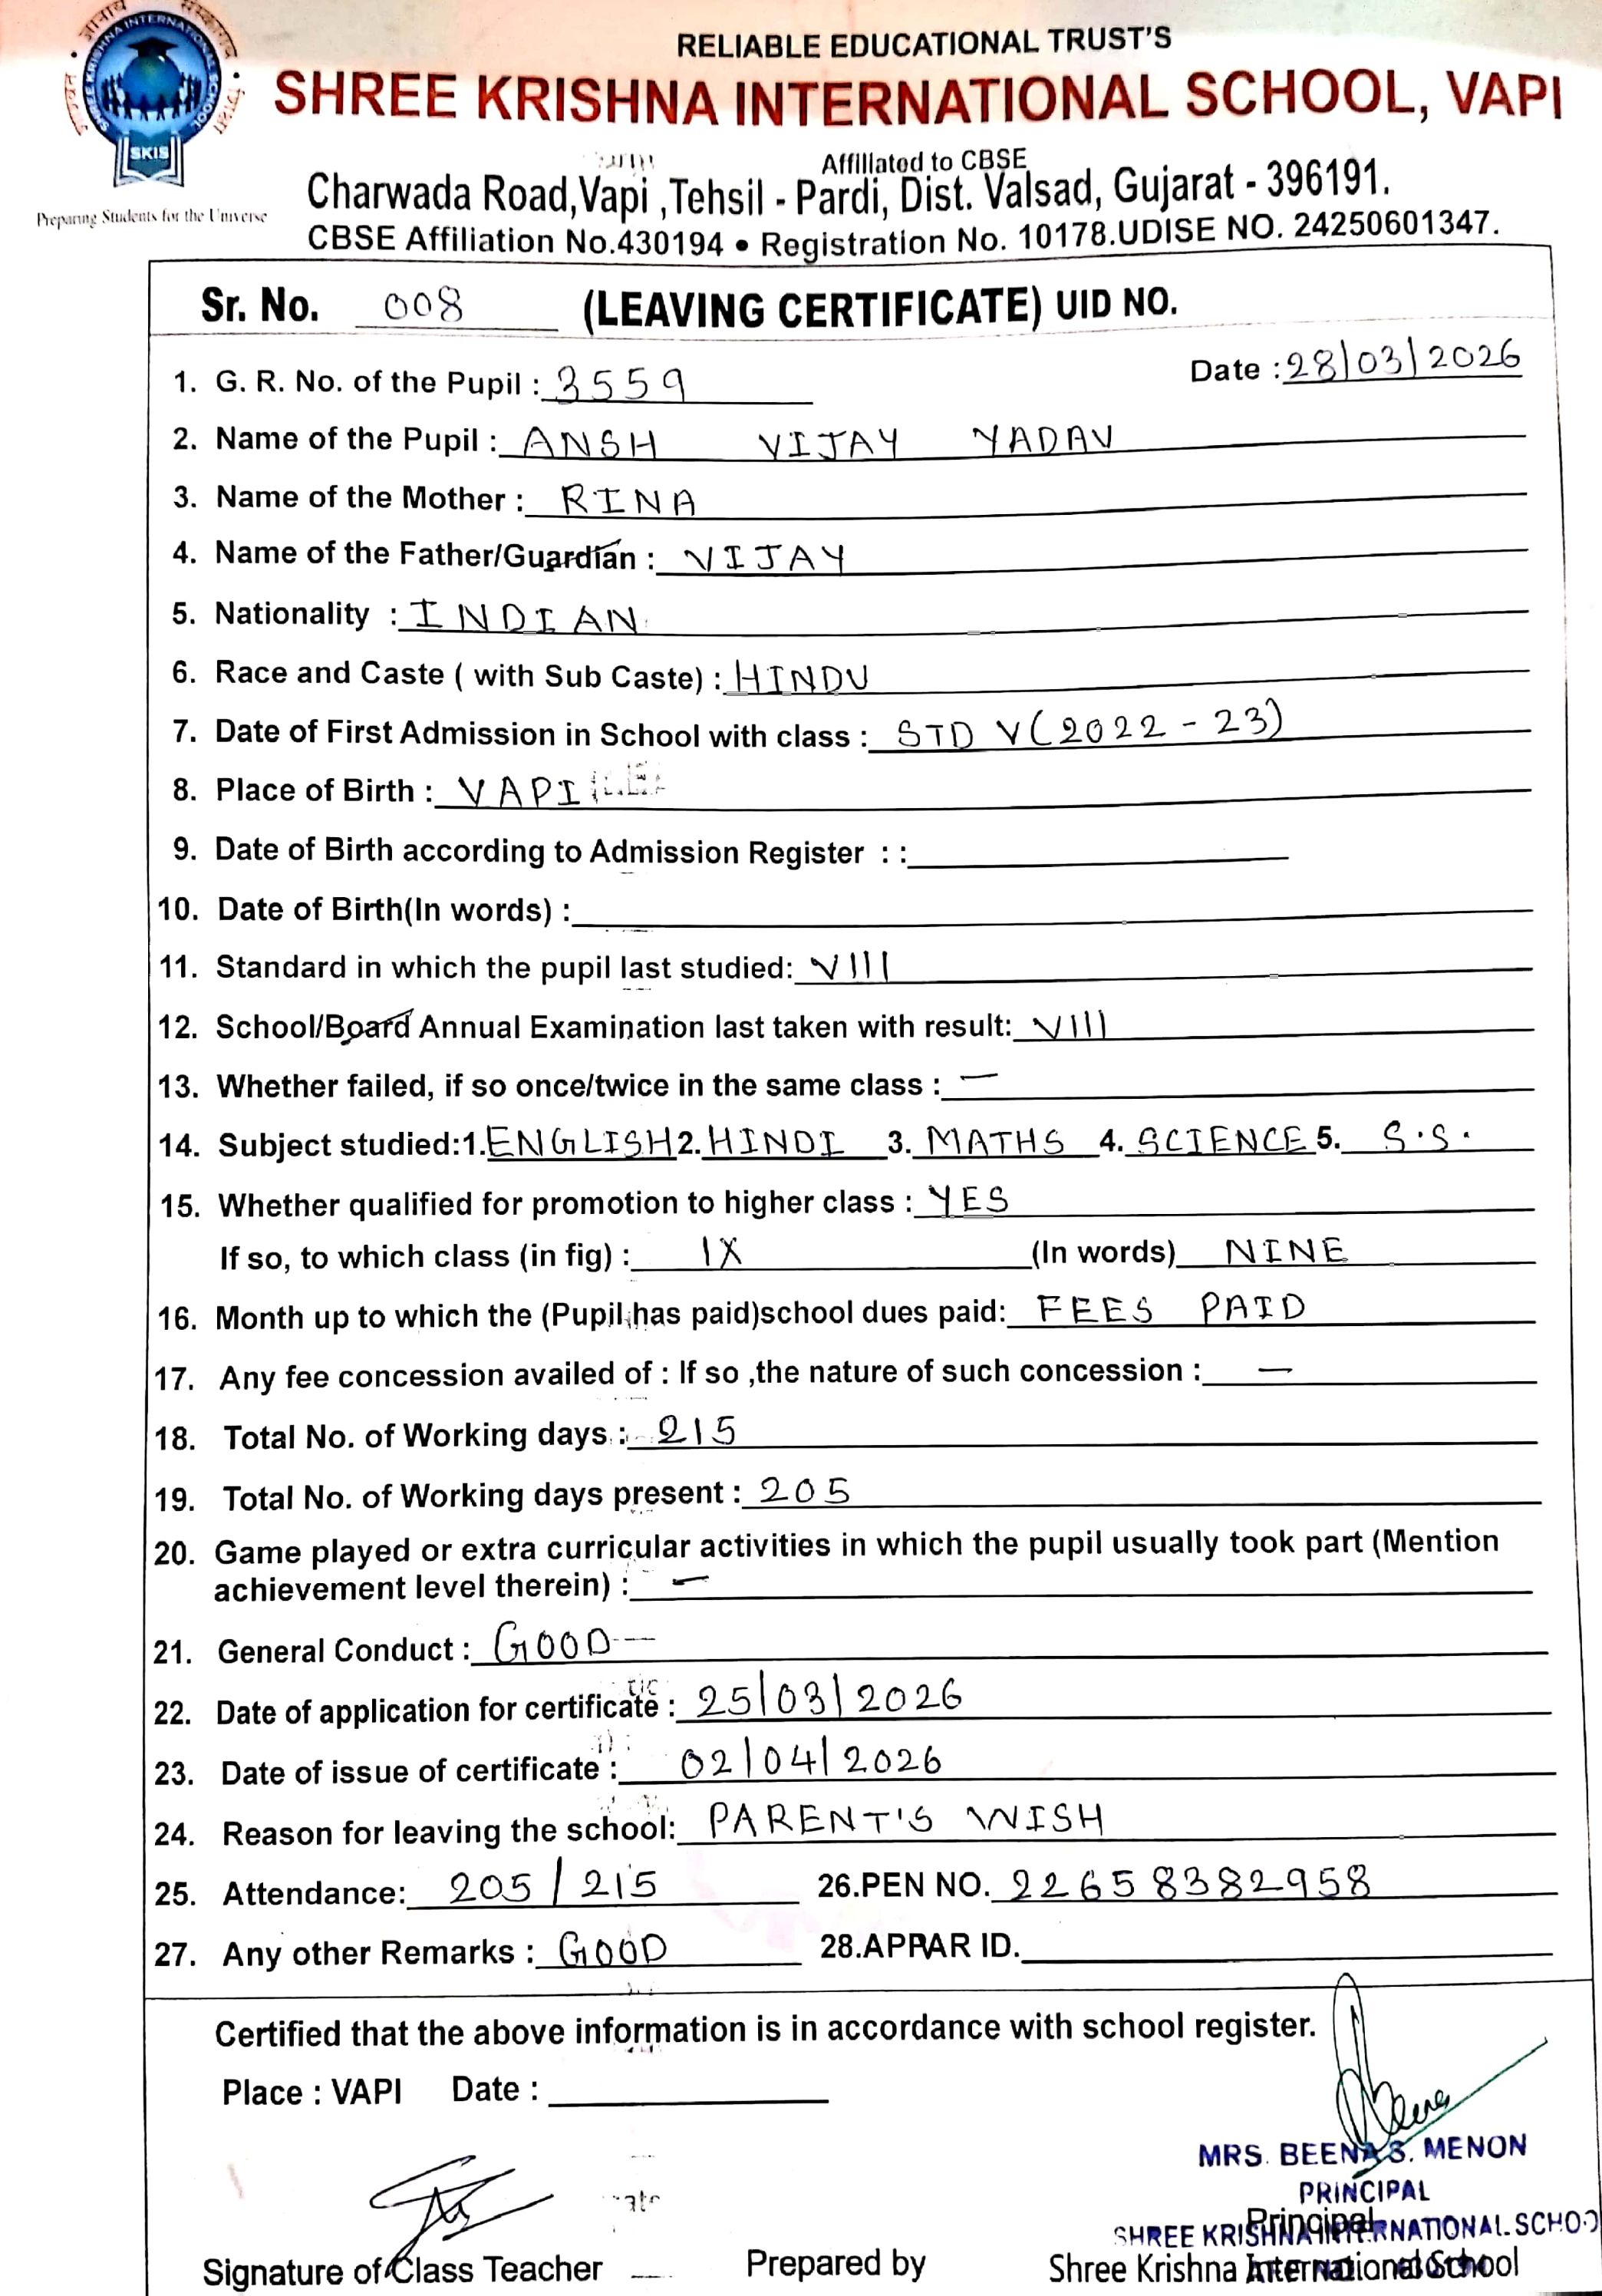 RELIABLE EDUCATIONAL TRUST'S
SHREE KRISHNA INTERNATIONAL SCHOOL, VAPI
SHREE KRISHNA INTERNATIONAL SCHOOL
SKIS
Preparing Students for the Universe
Affiliated to CBSE
Charwada Road,Vapi ,Tehsil - Pardi, Dist. Valsad, Gujarat - 396191.
CBSE Affiliation No.430194 • Registration No. 10178.UDISE NO. 24250601347.
Sr. No. 008 (LEAVING CERTIFICATE) UID NO.
Date :28/03/2026
1. G. R. No. of the Pupil : 3559
2. Name of the Pupil : ANSH VIJAY YADAV
3. Name of the Mother : RINA
4. Name of the Father/Guardian : VIJAY
5. Nationality : INDIAN
6. Race and Caste ( with Sub Caste) : HINDU
7. Date of First Admission in School with class : STD V (2022 - 23)
8. Place of Birth : VAPI
9. Date of Birth according to Admission Register : :
10. Date of Birth(In words) :
11. Standard in which the pupil last studied: VIII
12. School/Board Annual Examination last taken with result: VIII
13. Whether failed, if so once/twice in the same class : —
14. Subject studied:1.ENGLISH 2.HINDI 3. MATHS 4. SCIENCE 5. S.S.
15. Whether qualified for promotion to higher class : YES
If so, to which class (in fig) : IX (In words) NINE
16. Month up to which the (Pupil has paid)school dues paid: FEES PAID
17. Any fee concession availed of : If so ,the nature of such concession : —
18. Total No. of Working days : 215
19. Total No. of Working days present : 205
20. Game played or extra curricular activities in which the pupil usually took part (Mention
achievement level therein) : —
21. General Conduct : GOOD
22. Date of application for certificate : 25/03/2026
23. Date of issue of certificate : 02/04/2026
24. Reason for leaving the school: PARENT'S WISH
25. Attendance: 205 / 215 26.PEN NO. 22658382958
27. Any other Remarks : GOOD 28.APPAR ID.
Certified that the above information is in accordance with school register.
Place : VAPI Date :
MRS. BEENA S. MENON
PRINCIPAL
SHREE KRISHNA INTERNATIONAL SCHOO
Principal
Signature of Class Teacher Prepared by Shree Krishna International School